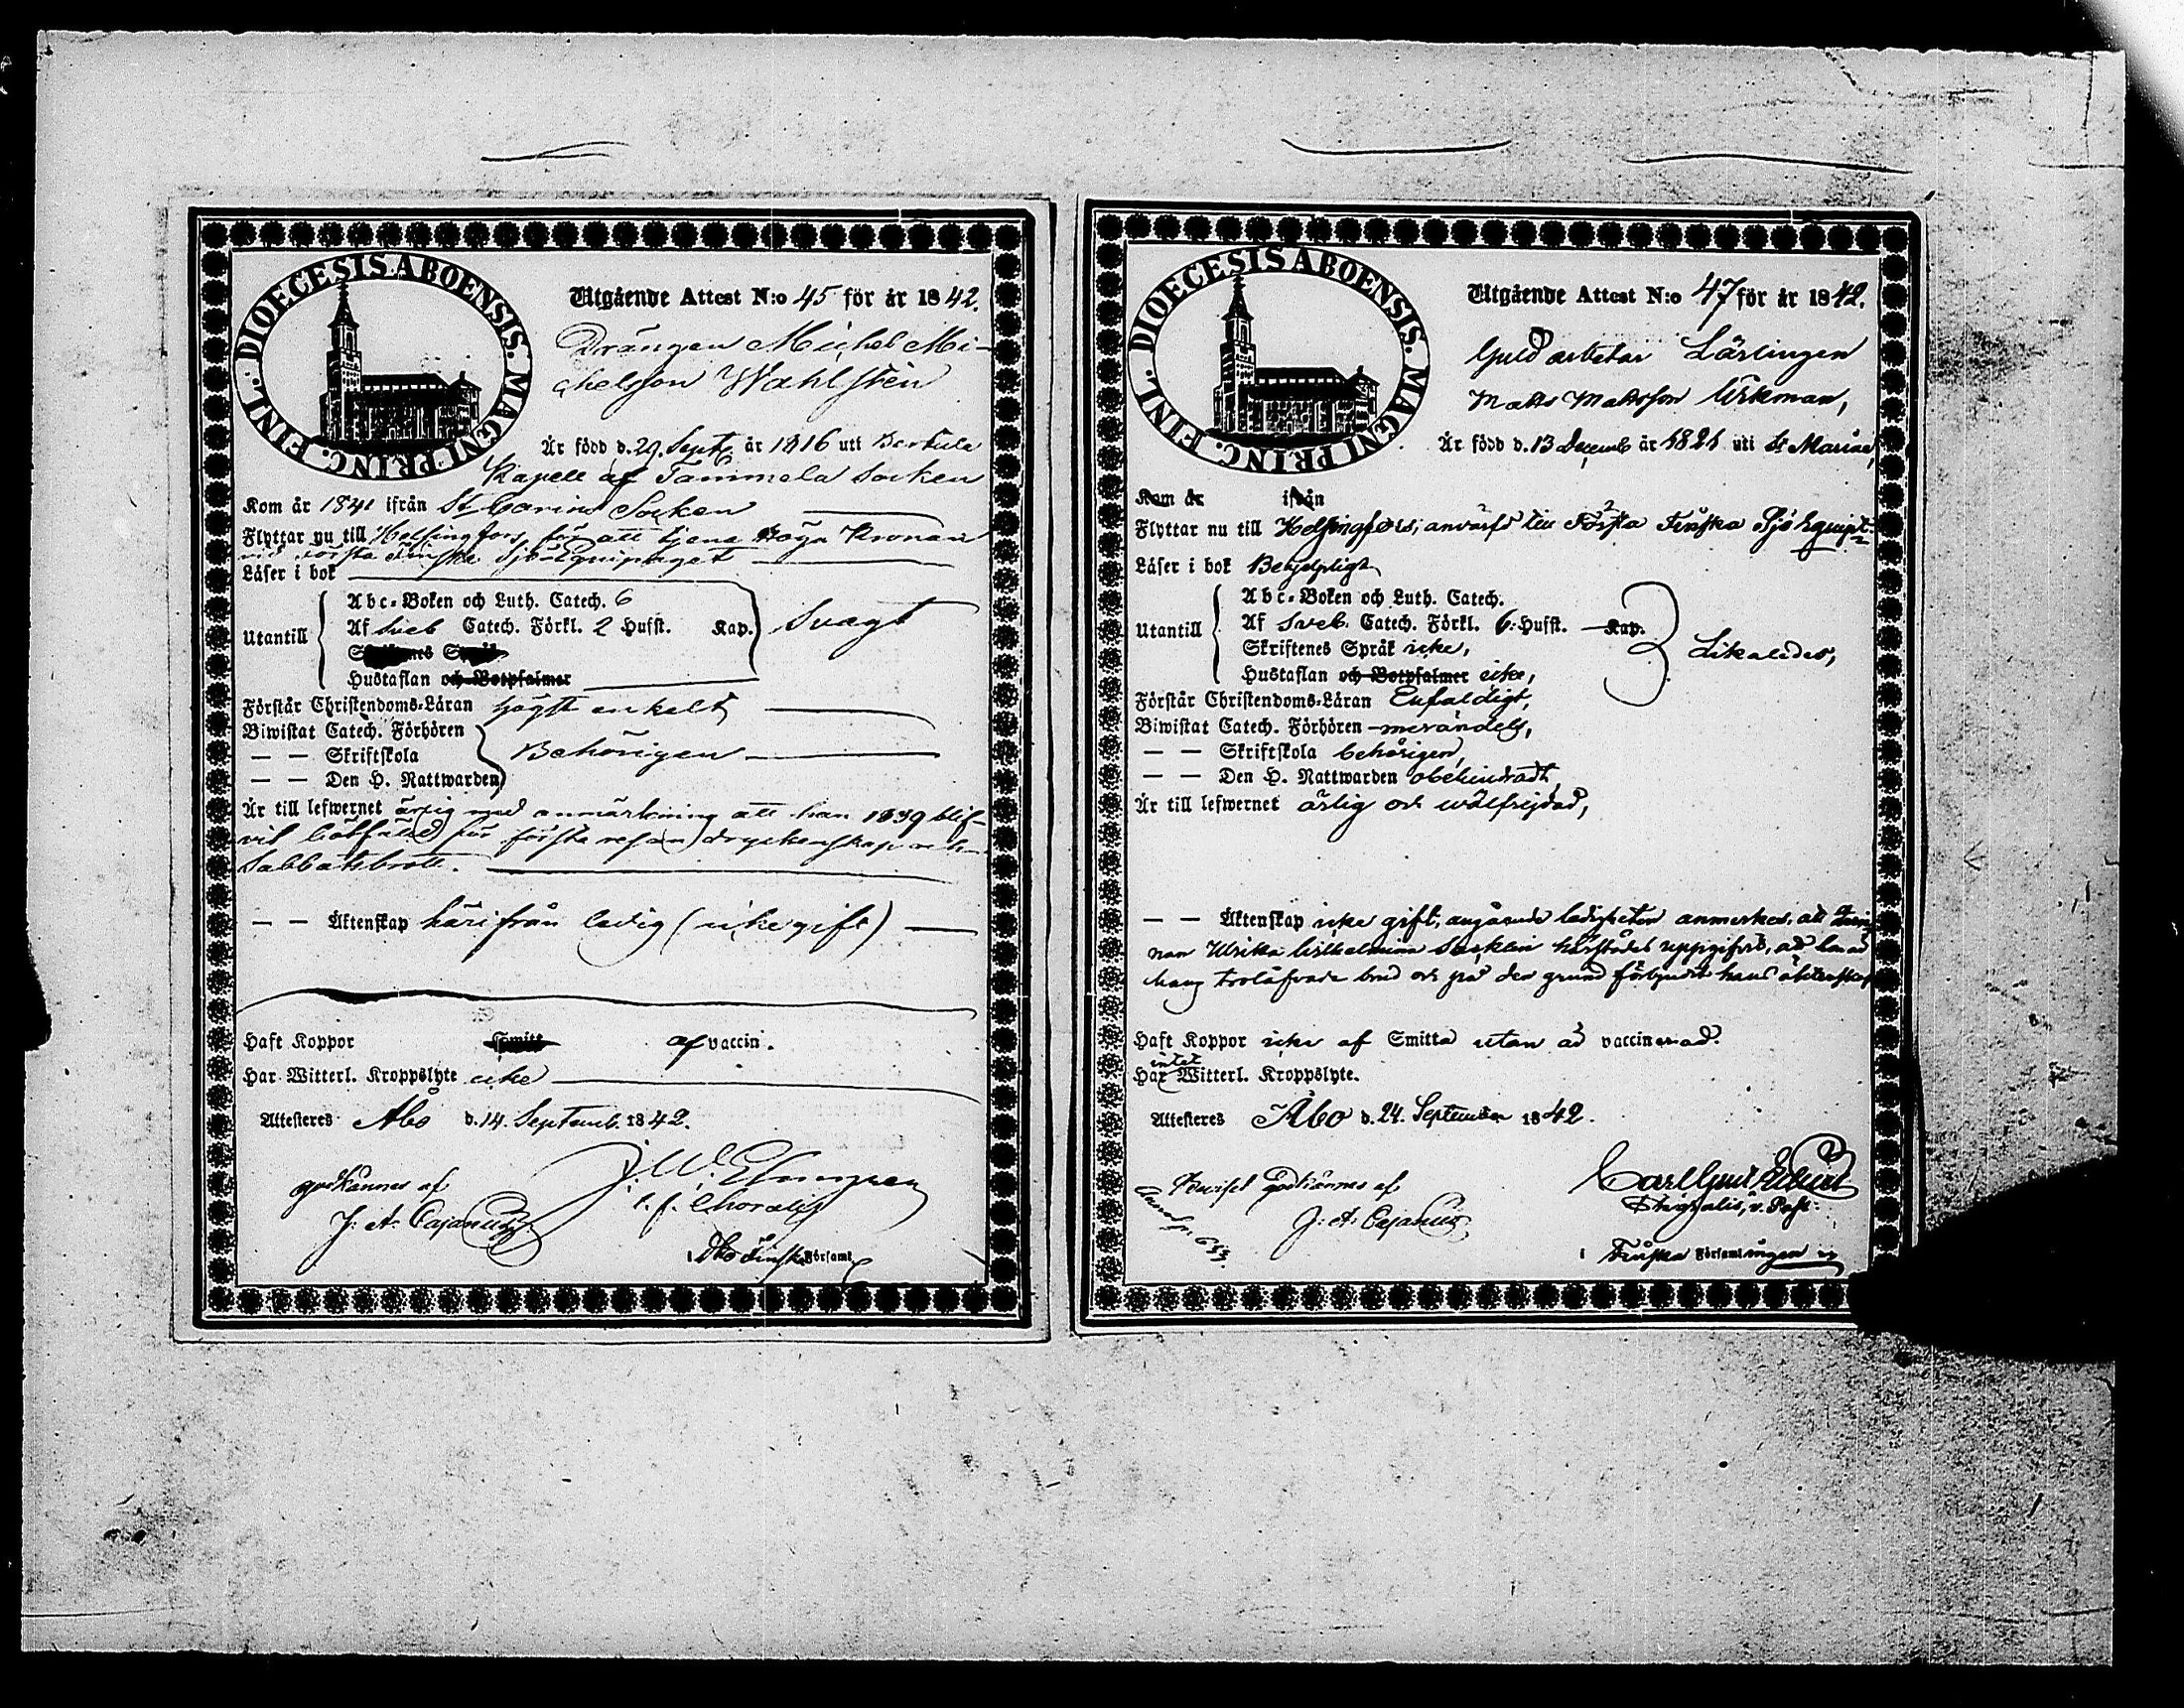 DIOECESIS ABOENSIS. MAGNI PRINC. FINL.
Utgående Attest N:o 45 för år 1842.
Drängen Michel Mi-
chelsson Wahlsten
Är född d. 29. Sept. år 1816 uti
Kapell af Tammela Socken
Kom år 1841 ifrån St Carins Socken
Flyttar nu till Helsingfors för att tjena Höga Kronan
vid första Finska Sjö Equipaget
Läser i bok
Utantill
Abc-Boken och Luth. Catech. 6
Af Sveb Catech. Förkl. 2 Hufst. Kap.
Svagt
Hustaflan och Botpsalmer
Förstår Christendoms-Läran högst enkelt
Biwistat Catech. Förhören
— — Skriftskola
Behörigen
— — Den H. Nattwarden
Är till lefwernet ärlig med anmärkning att han 1839 blif-
vit bötfäld för första resan dryckenskap och
Sabbatsbrott.
— — Äktenskap härifrån ledig (icke gift)
Haft Koppor Smitt af vaccin.
Har Witterl. Kroppslyte icke
Attesteres Åbo d. 14. Septemb. 1842.
godkännes af
J. A. Cajanus
J. W.
i Åbo Finska Församl
DIOECESIS ABOENSIS. MAGNI PRINC. FINL.
Utgående Attest N:o 47 för år 1842.
Guldarbetar Lärlingen
Matts Mattsson Urkman,
Är född d. 13 Decemb år 1821 uti St Mariae,
Kom år ifrån
Flyttar nu till Helsingfors, anvärfd till Första Finska Sjö Equip:
Läser i bok Begripligt
Utantill
Abc-Boken och Luth. Catech.
Af Sveb. Catech. Förkl. 6: Hufst. Kap.
Skriftenes Språk icke,
Likaledes,
Hustaflan och Botpsalmer icke,
Förstår Christendoms-Läran Enfaldigt,
Biwistat Catech. Förhören merändels,
— — Skriftskola behörigen,
— — Den H. Nattwarden obehindradt,
Är till lefwernet ärlig och wälfrejdad,
— — Äktenskap icke gift, angående ledigheten anmerkes, att
nan Ulrika Wilhelmina härstädes uppgifvit, att hon är
hans trolofvade brud och på den grund förbjudit hans äktenskap
Haft Koppor icke af Smitta utan är vaccinerad.
intet
Har Witterl. Kroppslyte.
Attesteres Åbo d. 24. September 1842.
Beviset godkännes af
J. A. Cajanus
v. Past.
i Finska Församlingen